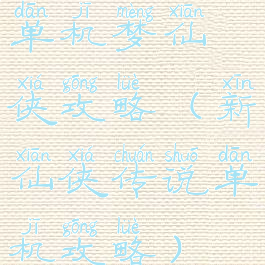 dān jī mèng xiān
单机梦仙
xiá gōng lüè xīn
侠攻略（新
xiān xiá chuán shuō dān
仙侠传说单
jī gōng lüè
机攻略）